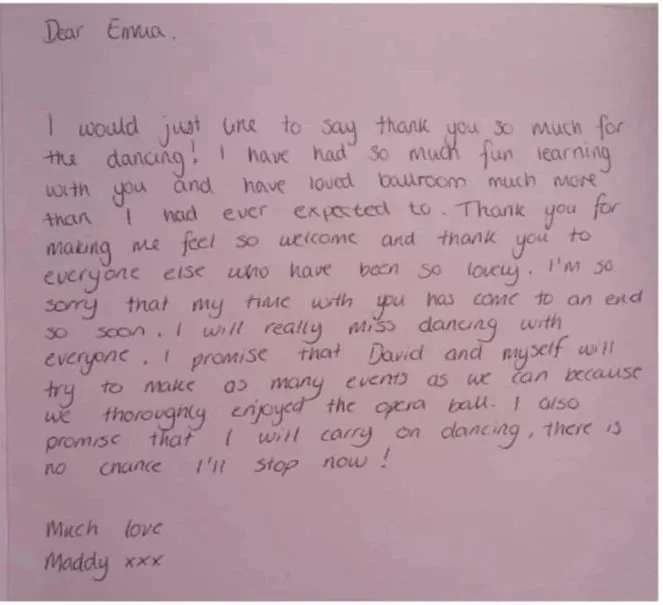 Dear Emma.
I would just like to say thank you so much for
the dancing! I have had so much fun learning
with you and have loved ballroom much more
than I had ever expected to. Thank you for
making me feel so welcome and thank you to
everyone else who have been so lovely. I'm so
sorry that my time with you has come to an end
so soon. I will really miss dancing with
everyone. I promise that David and myself will
try to make as many events as we can because
we thoroughly enjoyed the opera ball. I also
promise that I will carry on dancing, there is
no chance I'll stop now!
Much love
Maddy xxx